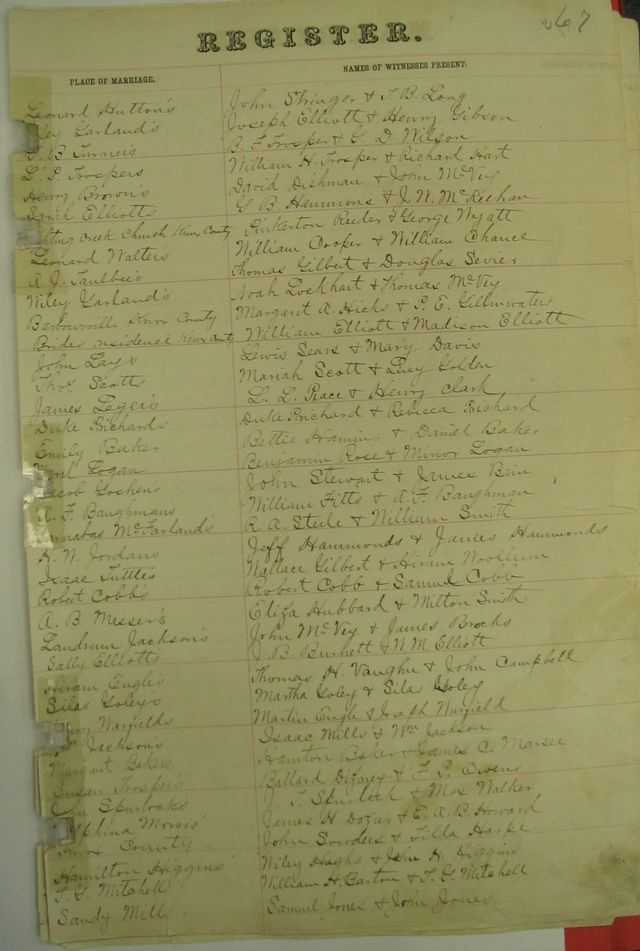 267
REGISTER.
PLACE OF MARRIAGE. NAMES OF WITNESSES PRESENT.
Leonard Hutton's John Stringer & T. B. Long
Garland's Joseph Elliott & Henry Gibson
G. B. Turner's B. F. Trosper & G. D. Wilson
L. P. Trospers William H. Trosper & Richard Hart
Henry Brown's David Dishman & John McVey
Sarah Elliotts G. B. Hammons & J. W. McKeehan
Creek Church Knox County Pinkerton Reeder & George Wyatt
Leonard Walters William Cooper & William Chance
A. J. Faulbee's Thomas Gilbert & Douglas Sevier
Wiley Garland's Noah Lockhart & Thomas McVey
Barbourville Knox County Margaret A. Hicks & P. E. Gilliunwaters
Brides residence Knox County William Elliott & Madison Elliott
John Lays Lewis Sears & Mary Davis
Thos Scotts Mariah Scott & Lucy Golden
James Leger's L. L. Peace & Henry Clark
Duke Prichard's Duke Prichard & Rebecca Prichard
Emily Baker Bettie Hamins & Daniel Baker
Logan Benjamin Rose & Minor Logan
Jacob Goshen's John Stewart & James Bain
A. F. Baughmans William Fitts & A. F. Baughman
Barnabas McFarland's R. A. Steele & William Smith
R. N. Jordans Jeff Hammonds & James Hammonds
Isaac Tuttles Wallace Gilbert & Hiram Woollum
Robert Cobb's Robert Cobb & Samuel Cobb
A. B. Messer's Eliza Hubbard & Milton Smith
Landrum Jackson's John McVey & James Brocks
Sally Elliotts J. B. Burnett & N. M. Elliott
Hiram Engle's Thomas H. Vaughn & John Campbell
Silas Goley's Martha Goley & Silas Goley
Warfields Martin Engle & Joseph Warfield
Jackson's Isaac Mills & Wm Jackson
Margaret Bakers Hamton Baker & James C. Marsee
Susan Trosper's Ballard Dizney & F. P. Owens
John Spurlocks J. T. Spurlock & Mos Walker
Morris' James H. Dozier & E. A. B. Howard
Knox County John Sowders & Tilla Harpe
Hamilton Higgins' Wiley Hughs & John H. Higgins
T. G. Mitchell William H. Barton & T. G. Mitchell
Sandy Mills Samuel Jones & John Jones